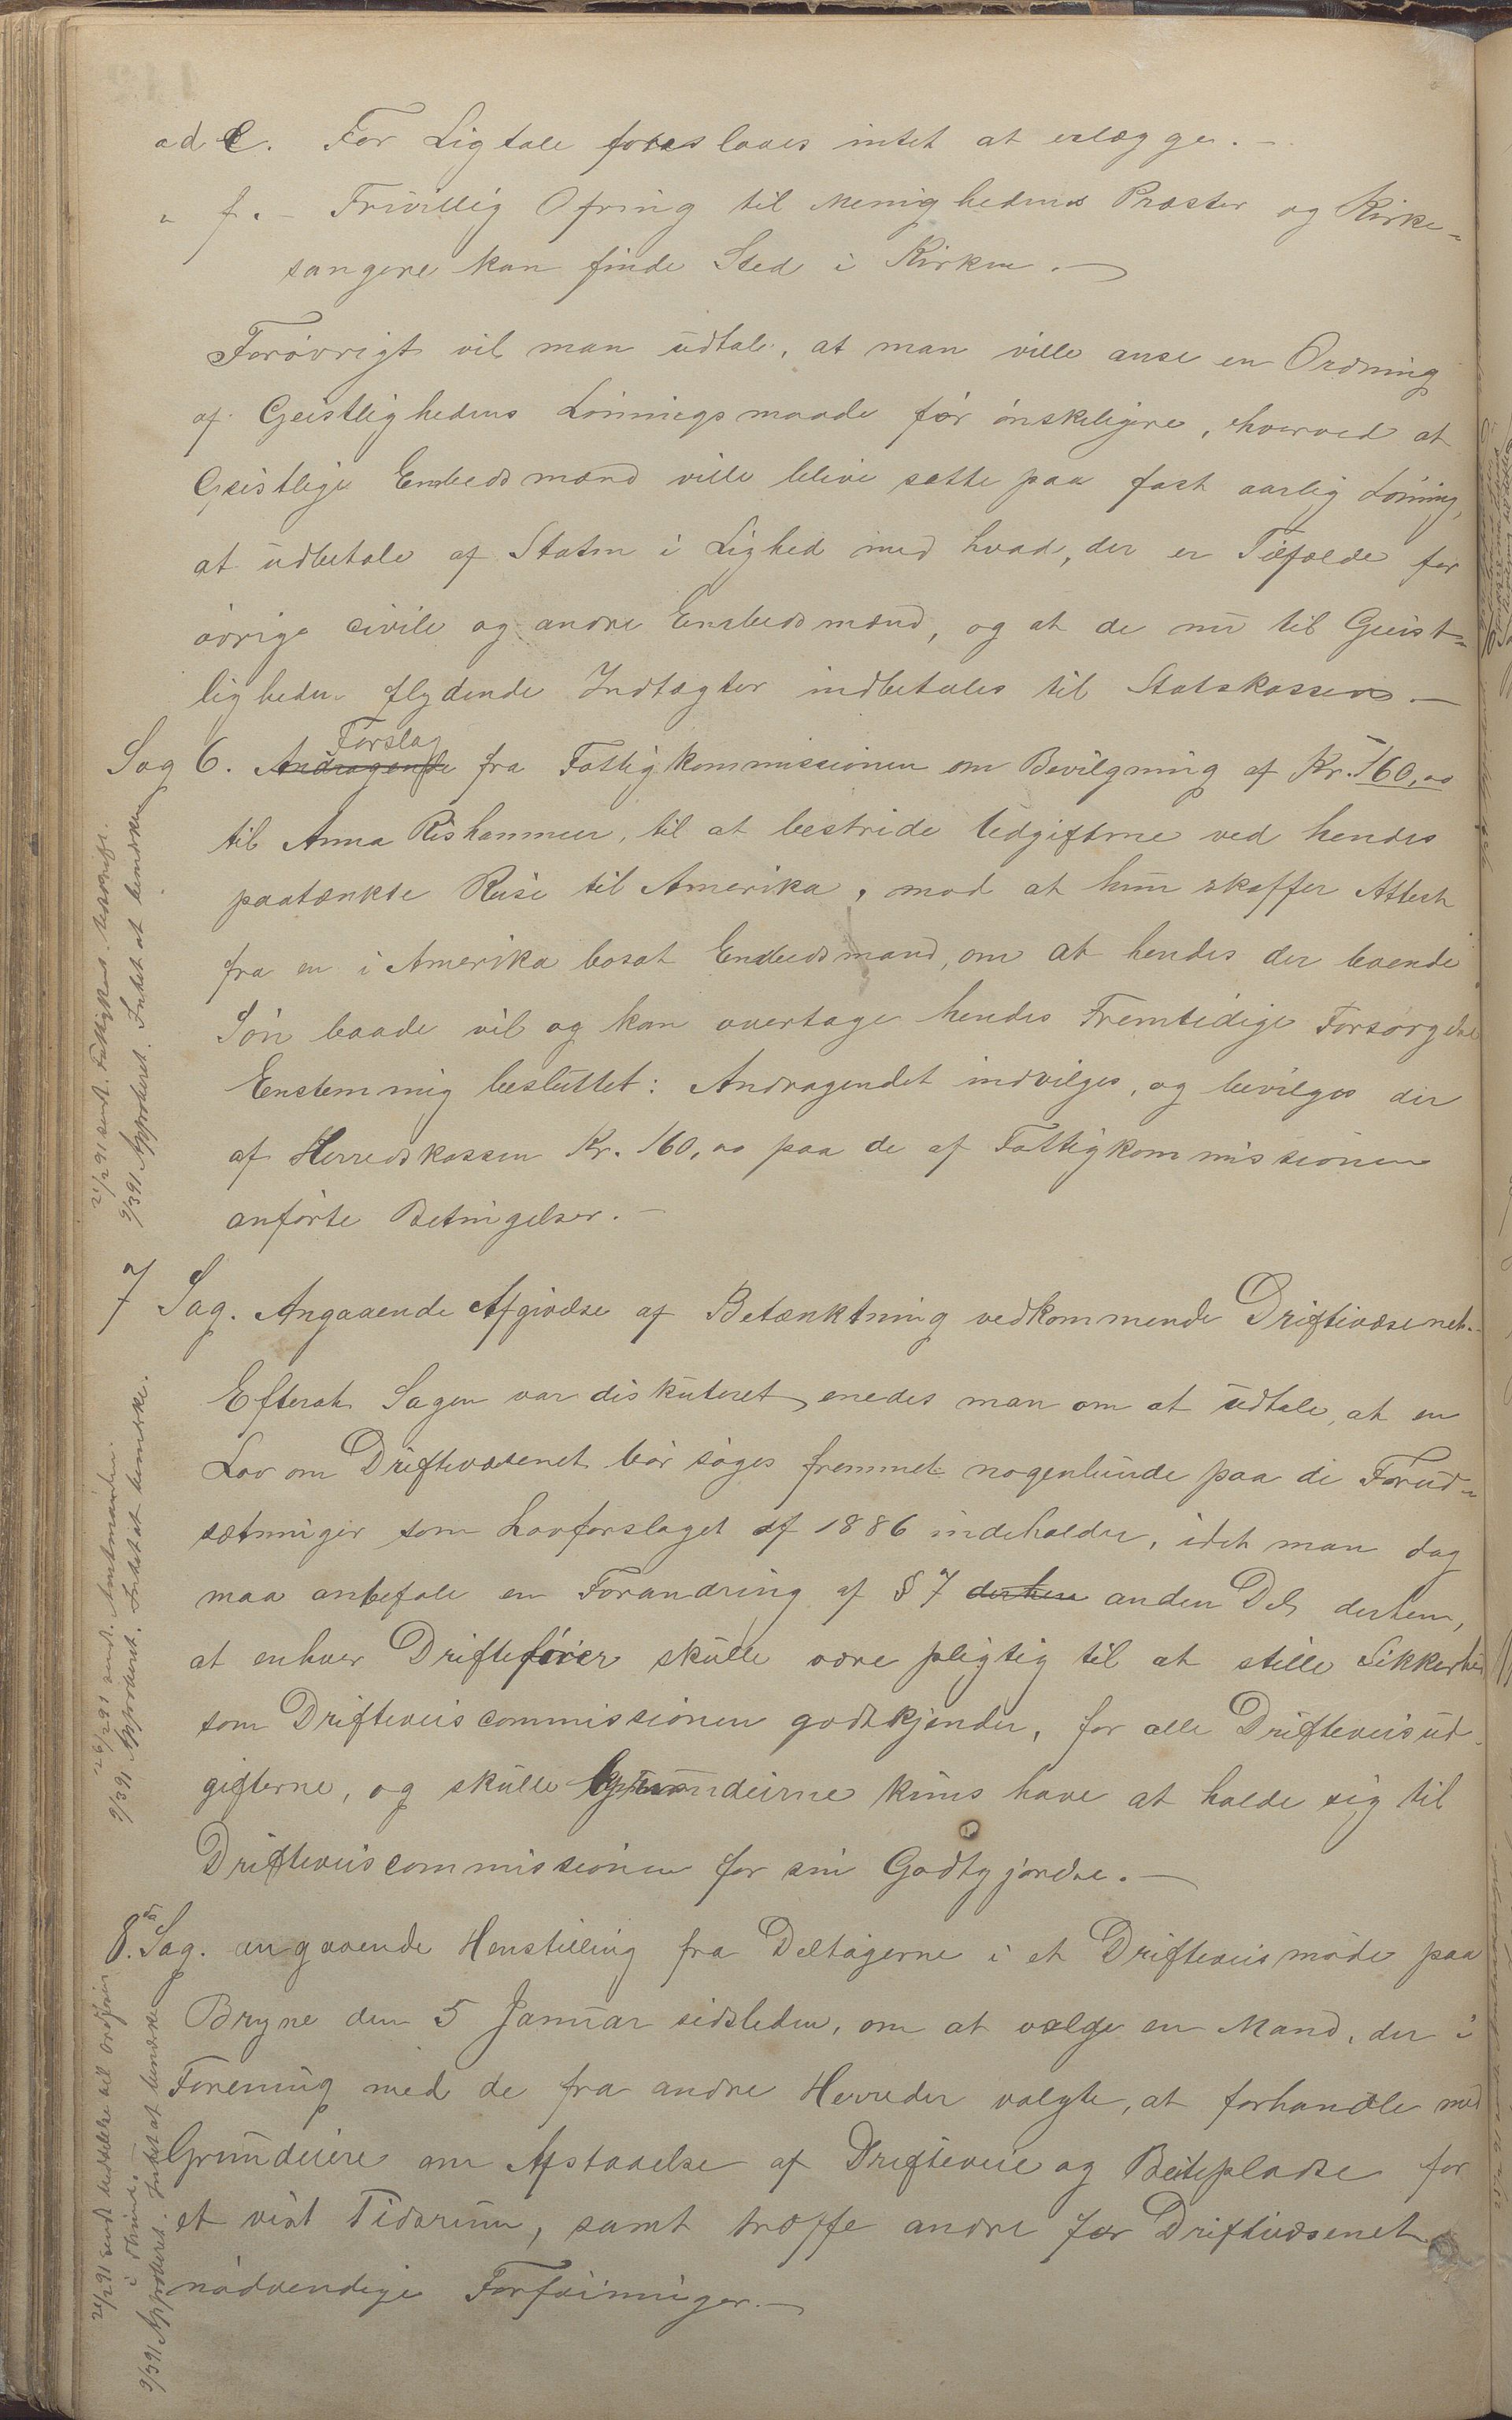 ad e. For Ligtale foreslaaes intet at erlægge. —
" f. — Frivillig Ofring til Menighedens Præster og Kirke-
sangere kan finde Sted i Kirken. —
Forøvrigt vil man udtale, at man ville anse en Ordning
af Geistlighedens Lønningsmaade for ønskeligere, hvorved at
Geistlige Embedsmænd ville blive satte paa fast aarlig Lønning,
at udbetale af Staten i Lighed med hvad, der er Tilfælde for
øvrige civile og andre Embedsmænd, og at de nu til Geist-
ligheden flydende Indtægter indbetales til Statskassen. —
Forslag
Sag 6. Andragende fra Fattigkommissionen om Bevilgning af Kr. 160,00
til Anna Rishammer, til at bestride Udgifterne ved hendes
paatænkte Reise til Amerika, mod at hun skaffer Attest
fra en i Amerika bosat Embedsmand, om at hendes der boende
Søn baade vil og kan overtage hendes Fremtidige Forsørgelse
Enstemmig besluttet: Andragendet indvilges, og bevilges der
af Herredskassen Kr. 160,00 paa de af Fattigkommissionen
anførte Betingelser. —
21/2 91 sendt Fattigkom. Udskrift.
9/3 91 Approberet. Intet at bemærke
7 Sag. Angaaende Afgivelse af Betænktning vedkommende Driftevæsenet. —
Efterat Sagen var diskuteret enedes man om at udtale, at en
Lov om Driftevæsenet bør søges fremmet nogenlunde paa de Forud-
sætninger som Lovforslaget af 1886 indeholder, idet man dog
maa anbefale en Forandring af § 7 derhen anden Del derhen,
at enhver Driftefører skulle være pligtig til at stille Sikkerhed
som Drifteveiscommissionen godkjender, for alle Drifteveisud-
gifterne, og skulle Grundeierne kuns have at holde sig til
Drifteveiscommissionen for sin Godtgjørelse. —
26/2 91 sendt Amtmanden.
9/3 91 Approberet. Intet at bemærke.
8.de Sag. angaaende Henstilling fra Deltagerne i et Drifteveismøde paa
Bryne den 5 Januar sidsleden, om at vælge en Mand, der i
Forening med de fra andre Herreder valgte, at forhandle med
Grundeiere om Afstaaelse af Drifteveie og Beitepladse for
et vist Tidsrum, samt træffe andre for Driftevæsenet
nødvendige Forføininger. —
21/2 91 sendt Meddelelse til Ordfører
i
9/3 91 Approberet. Intet at bemærke